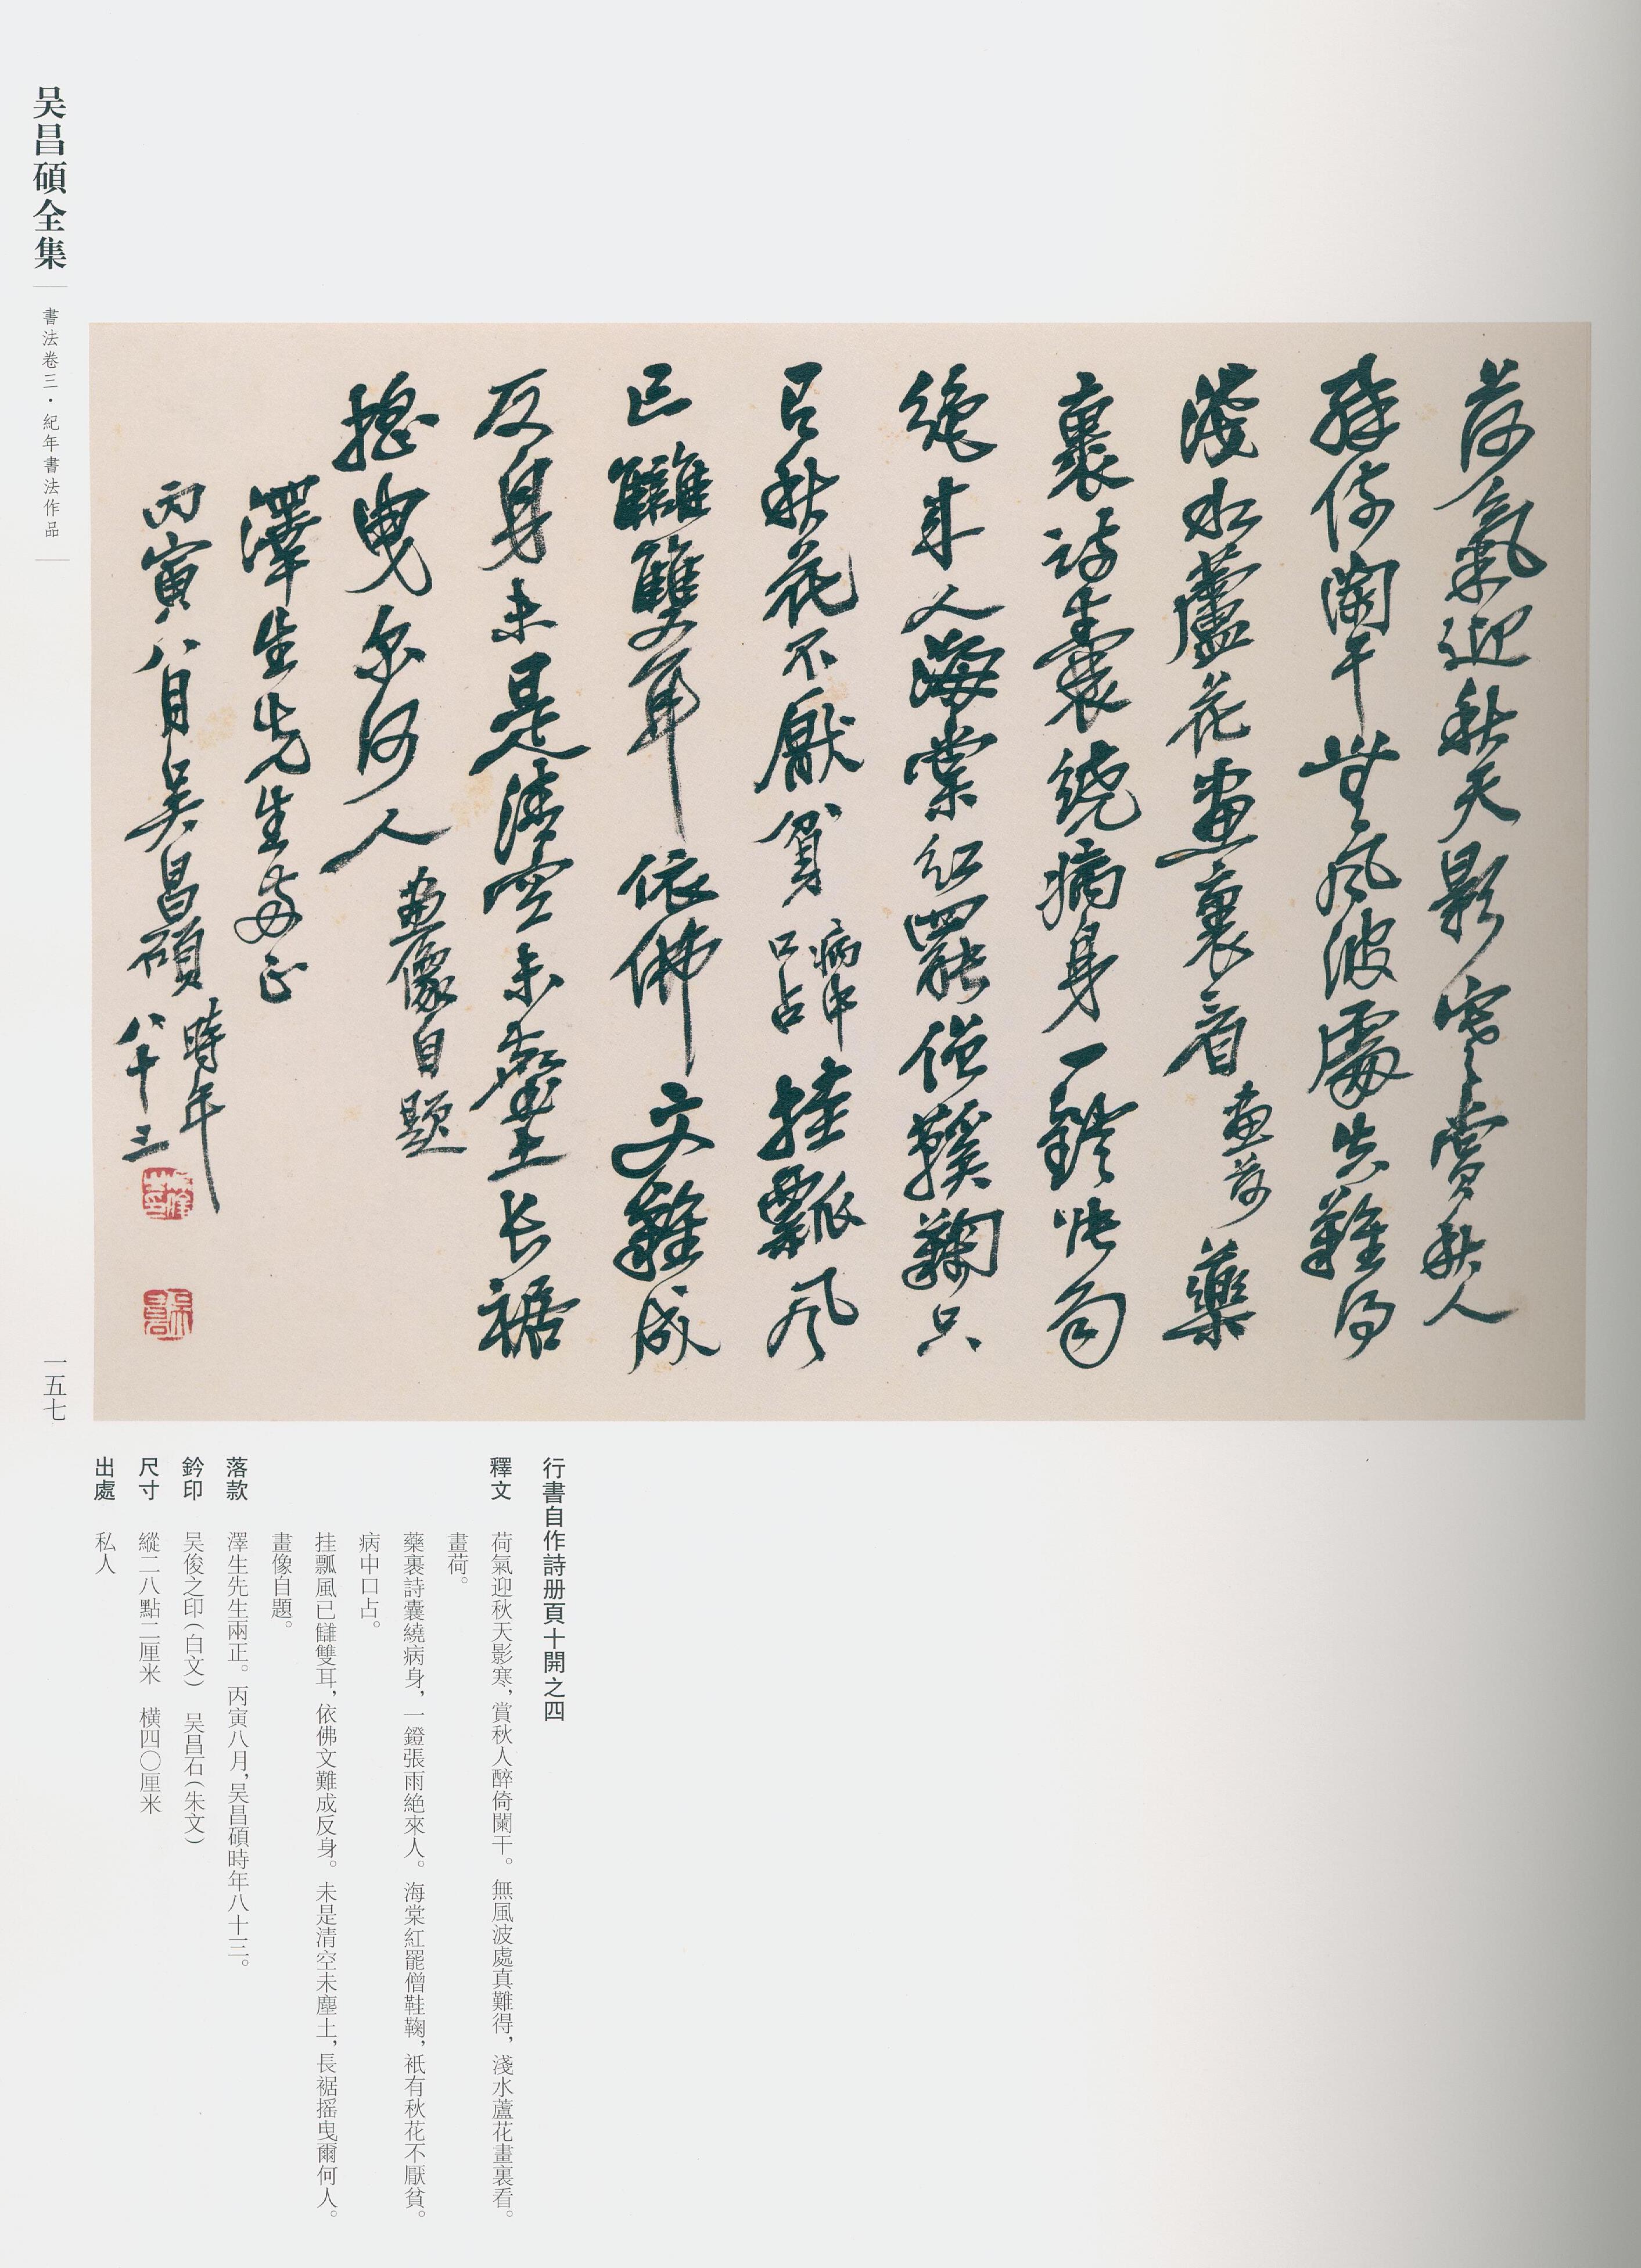 吴昌碩全集
書法卷三·紀年書法作品
一五七
荷氣迎秋天影寒賞秋人
醉倚闌干無風波處真難得
淺水蘆花畫裏看 畫荷 藥
裹詩囊繞病身一鐙張雨
絕来人海棠紅罷僧鞵鞠只
有秋花不厭貧 病中口占 挂瓢風
已讎雙耳依佛文難成
反身未是清空未塵土长裾
摇曳尔何人 畫像自題
澤生先生兩正
丙寅八月吴昌碩時年
八十三
行書自作詩册頁十開之四
釋文 荷氣迎秋天影寒，賞秋人醉倚闌干。無風波處真難得，淺水蘆花畫裏看。
畫荷。
藥裹詩囊繞病身，一鐙張雨絶來人。海棠紅罷僧鞋鞠，衹有秋花不厭貧。
病中口占。
挂瓢風已讎雙耳，依佛文難成反身。未是清空未塵土，長裾摇曳爾何人。
畫像自題。
落款 澤生先生兩正。丙寅八月，吴昌碩時年八十三。
鈐印 吴俊之印（白文） 吴昌石（朱文）
尺寸 縱二八點二厘米 橫四〇厘米
出處 私人